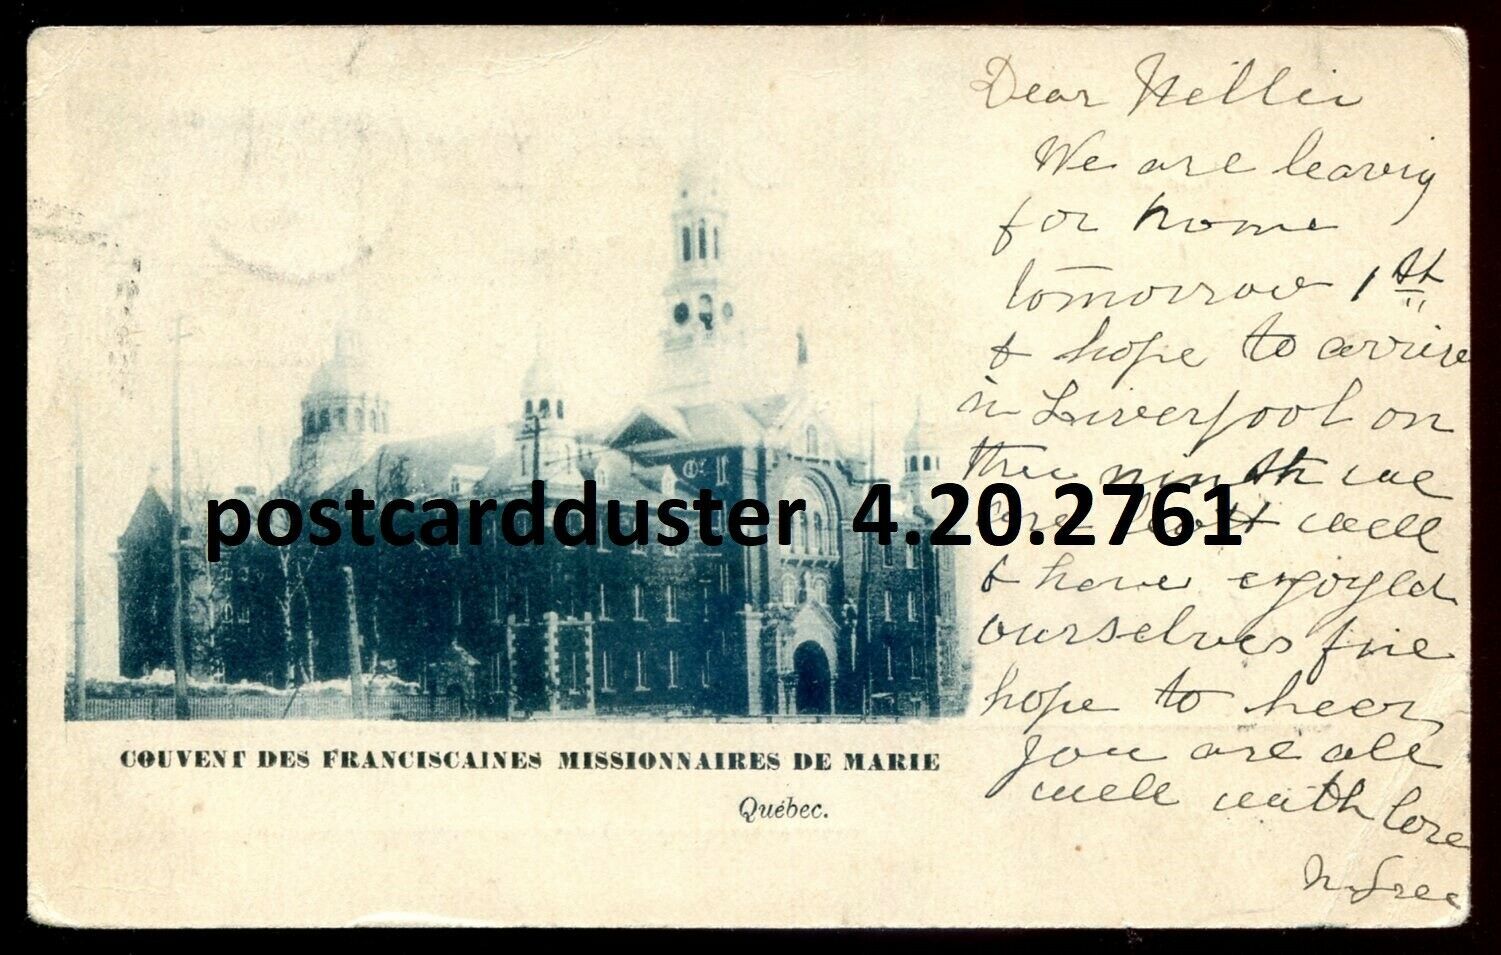 Dear Nellie
We are leavig
for home
tomorrow 1st
& hope to arrive
in Liverpool on
the ninth we
are both well
& have enjoyed
ourselves fine
hope to heer
you are all
well with love
postcardduster 4.20.2761
COUVENT DES FRANCISCAINES MISSIONNAIRES DE MARIE
Québec.